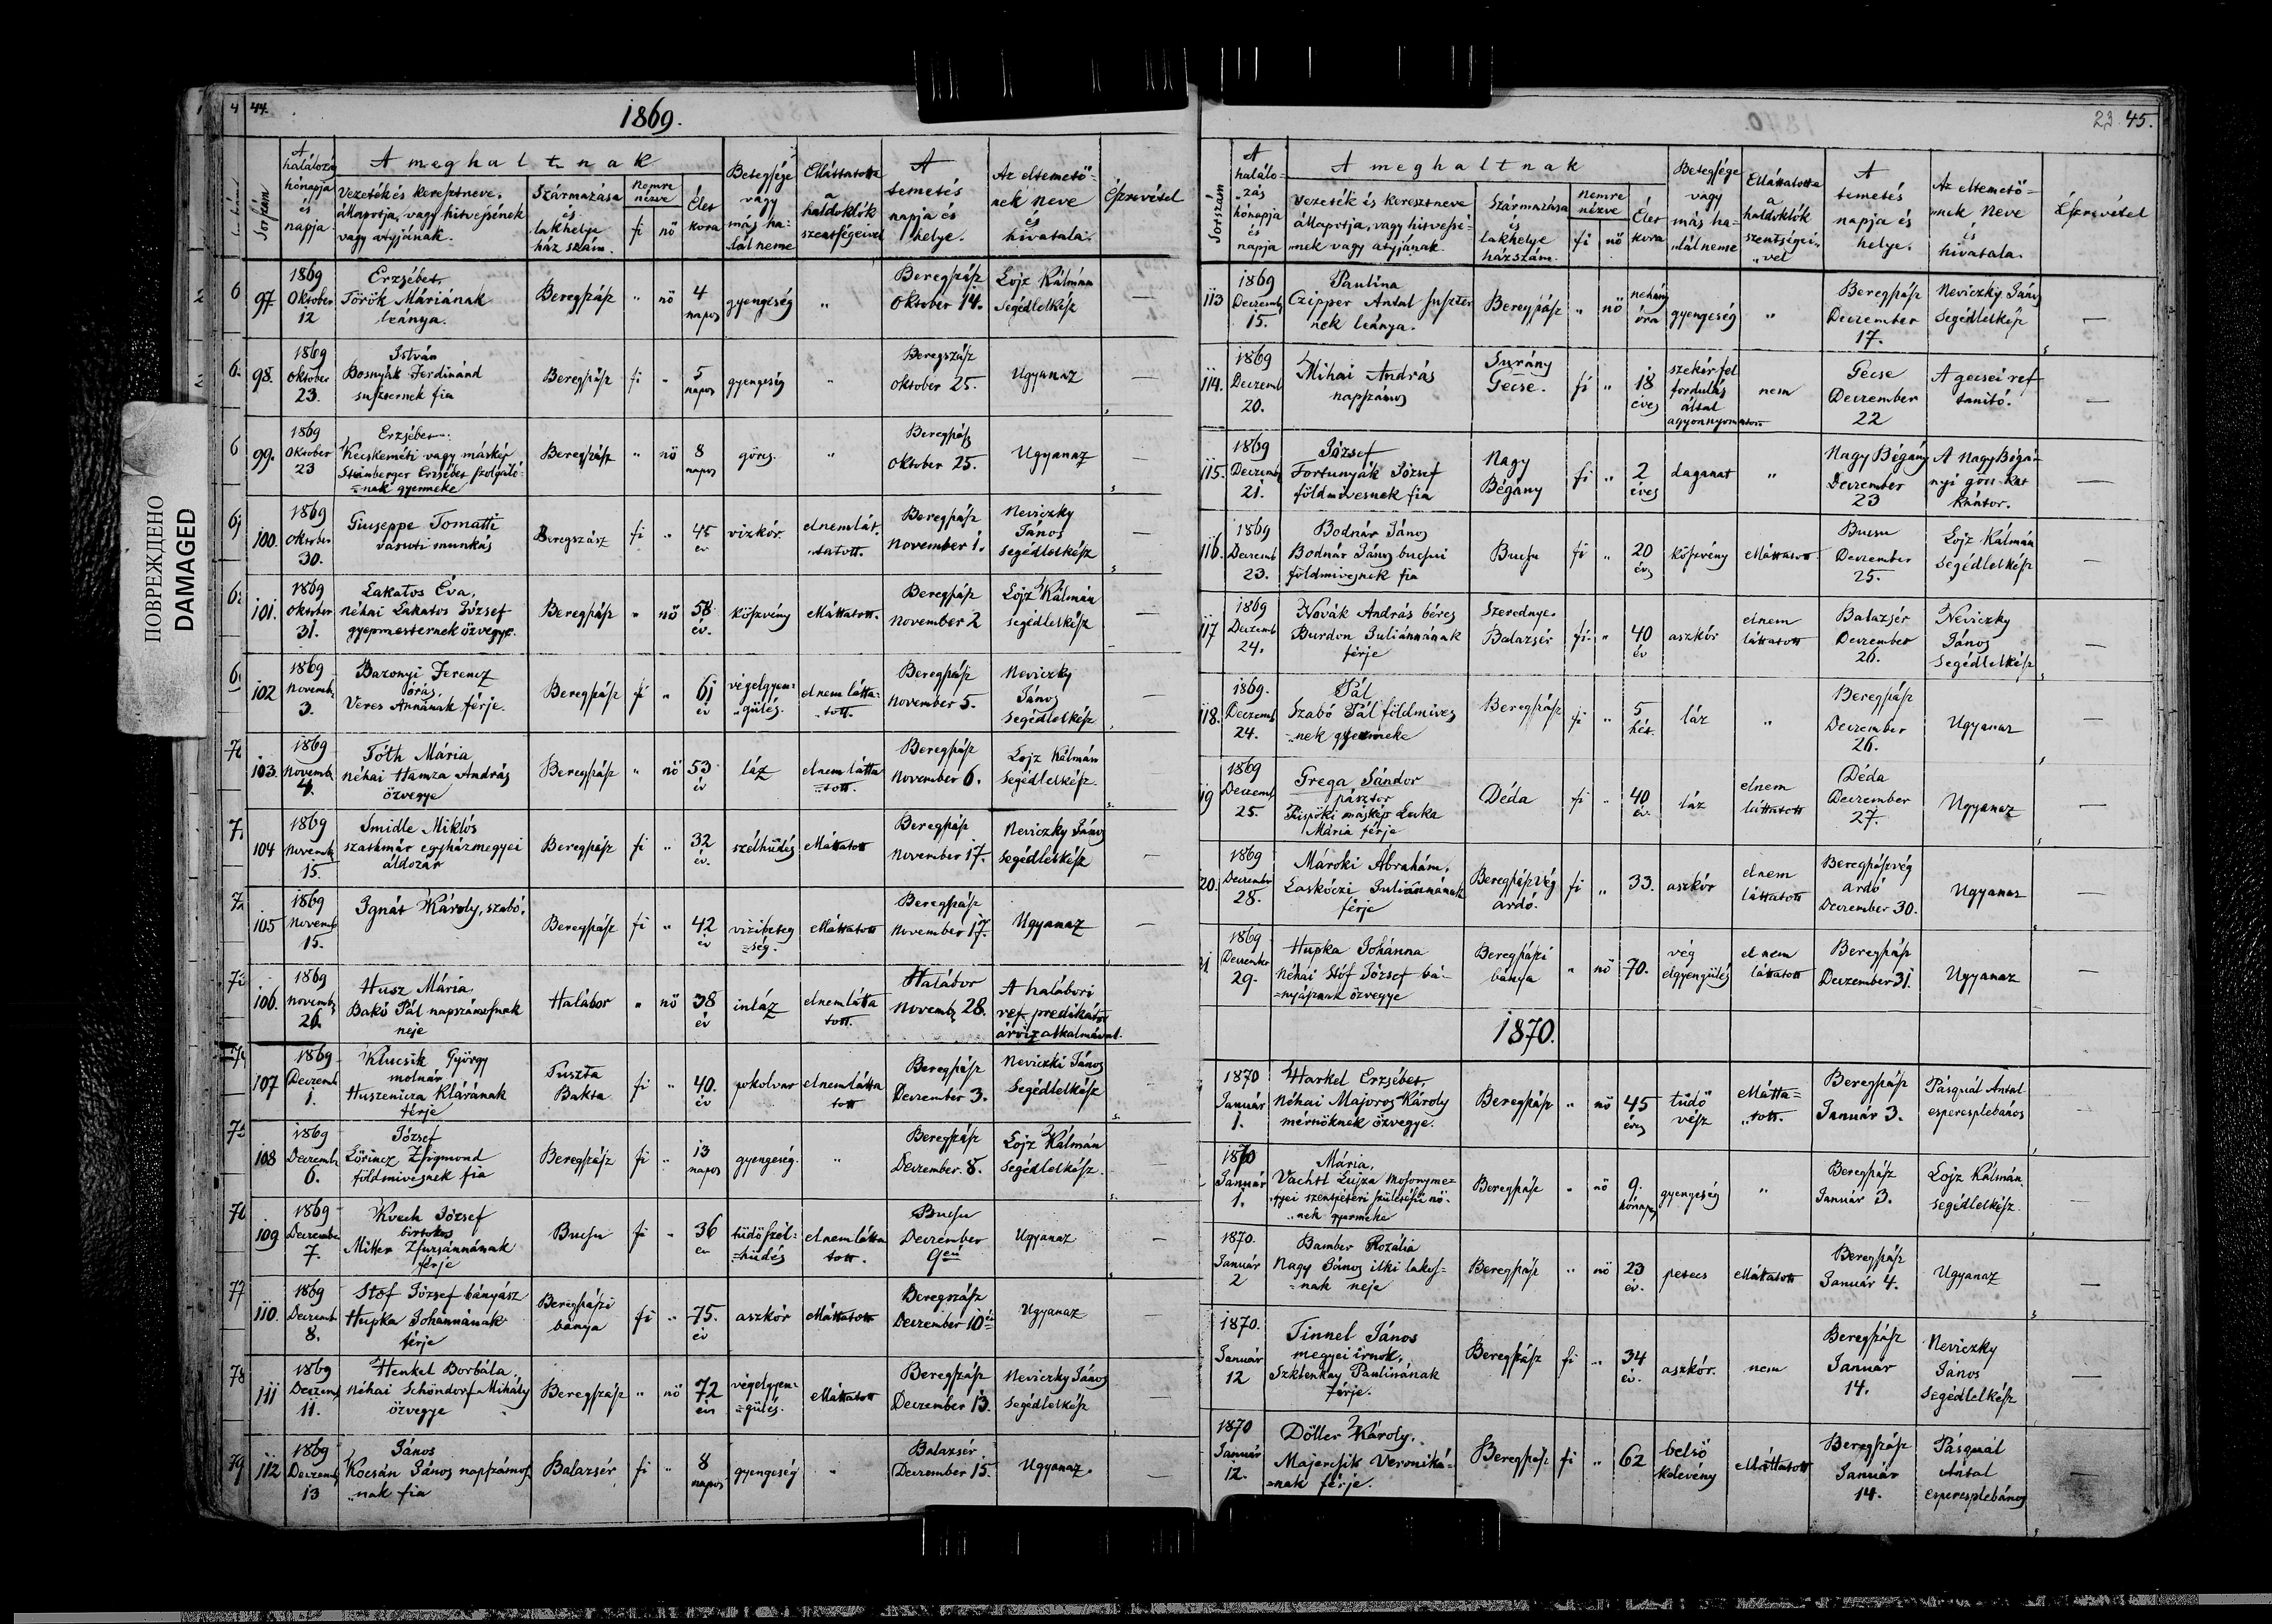 44.
1869.
ПОВРЕЖДЕНО
DAMAGED
Sorszám
A halálozás hónapja és napja
A meghaltnak
Vezeték és keresztneve, állapotja, vagy hitvesének vagy atyjának.
Származása és lakhelye ház szám.
Nemre nézve
fi
nő
Élet kora
Betegsége vagy más halál neme
Elláttatott-e a haldoklók szentségeivel
A temetés napja és helye.
Az eltemetőnek neve és hivatala.
Észrevétel
97. 1869 Oktober 12 Erzsébet Török Máriának leánya. Beregszász " nő 4 napos gyengeség " Beregszász Oktober 14. Lojz Kálmán Segédlelkész —
98. 1869 Oktober 23. István Bosnyák Ferdinánd suszternek fia Beregszász fi " 5 napos gyengeség " Beregszász Oktober 25. Ugyanaz —
99. 1869 Oktober 23 Erzsébet Kecskeméti vagy máskép Steinberger Erzsébet szolgálónak gyermeke Beregszász " nő 8 napos görcs. " Beregszász Oktober 25. Ugyanaz —
100. 1869 Oktober 30. Giuseppe Tomatti vasuti munkás Beregszász fi " 45 év vizkór. el nem láttatott. Beregszász November 1. Neviczky János Segédlelkész —
101. 1869 Oktober 31. Lakatos Éva, néhai Lakatos József gyepmesternek özvegye. Beregszász " nő 58 év. köszvény elláttatott. Beregszász November 2 Lojz Kálmán segédlelkész —
102 1869 Novemb. 3. Bazonyi Ferencz órás, Veres Annának férje. Beregszász fi " 61 év végelgyengülés. el nem láttatott. Beregszász November 5. Neviczky János Segédlelkész —
103. 1869 Novemb. 4. Tóth Mária néhai Hamza András özvegye Beregszász " nő 53 év láz el nem láttatott. Beregszász November 6. Lojz Kálmán Segédlelkész —
104 1869 Novemb. 15. Smidle Miklós szathmár egyházmegyei áldozár Beregszász fi " 32 év. szélhüdés elláttatott Beregszász November 17. Neviczky János segédlelkész —
105 1869 Novemb. 15. Ignát Károly, szabó. Beregszász fi " 42 év vizibetegség. elláttatott Beregszász November 17. Ugyanaz —
106. 1869 Novemb. 26. Husz Mária, Bakó Pál napszámosnak neje Halábor " nő 38 év inláz el nem láttatott. Halábor Novemb. 28. A halábori ref predikátor árviz alkalmával.
107 1869 Decemb. 1. Klucsik György molnár Huszenicza Klárának férje Puszta Bakta fi " 40. év pokolvar el nem láttatott Beregszász Dezember 3. Neviczki János Segédlelkész —
108 1869 Decemb. 6. József Lőrincz Zsigmond földmivesnek fia Beregszász fi " 13 napos gyengeség. " Beregszász Dezember 8. Lojz Kálmán Segédlelkész. —
109 1869 Dezember 7. Kvech József birtokos Mitter Zsuzsánnának férje Bucsu fi " 36 év tüdőszélhüdés el nem láttatott. Bucsu Dezember 9én Ugyanaz —
110. 1869 Decemb. 8. Stof József bányász Hupka Johannának férje Beregszászi bánya fi " 75. év aszkór elláttatott Beregszász Dezember 10én Ugyanaz —
111 1869 Dezemb. 11. Henkel Borbála, néhai Schöndorf Mihály özvegye Beregszász " nő 72 éves végelgyengülés. elláttatott Beregszász Dezember 13. Neviczky János Segédlelkész —
112 1869 Dezemb. 13 János Kocsán János napszámosnak fia Balazsér fi " 8 napos gyengeség " Balazsér Dezember 15. Ugyanaz. —
23 45.
Sorszám
A halálozás hónapja és napja
A meghaltnak
Vezeték és keresztneve állapotja, vagy hitvesének vagy atyjának
Származása és lakhelye házszám.
Nemre nézve
fi
nő
Élet kora
Betegsége vagy más halál neme
Elláttatott-e a haldoklók szentségeivel
A temetés napja és helye.
Az eltemetőnek neve és hivatala.
Észrevétel
113 1869 Dezemb. 15. Paulina Czipper Antal suszternek leánya. Beregszász " nő néhány óra gyengeség " Beregszász Dezember 17. Neviczky János Segédlelkész —
114. 1869 Dezemb. 20. Mihai András napszámos Surány Gecse. fi " 18 éves szekér felfordulás által agyonnyomatott nem Gecse Dezember 22 A gecsei ref tanitó. —
115. 1869 Dezemb. 21. József Fortunyák József földmivesnek fia Nagy Bégány fi " 2 éves daganat " Nagy Bégány Dezember 23 A Nagy Bégányi gör. kat kántor. —
116. 1869 Dezemb. 23. Bodnár János Bodnár János bucsui földmivesnek fia Bucsu fi " 20 éves köszvény elláttatott Bucsu Dezember 25. Lojz Kálmán Segédlelkész —
117 1869 Dezemb. 24. Novák András béres Burdon Juliánnának férje Szerednye Balazsér fi " 40 év aszkór el nem láttatott Balazsér Dezember 26. Neviczky János Segédlelkész —
118. 1869. Dezemb. 24. Pál Szabó Pál földmivesnek gyermeke Beregszász fi " 5 hét. láz " Beregszász Dezember 26. Ugyanaz —
19 1869 Dezemb. 25. Grega Sándor pásztor Püspöki máskép Luka Mária férje Déda fi " 40 év. láz el nem láttatott Déda Dezember 27. Ugyanaz —
20. 1869 Dezember 28.Ároki Ábrahám, Laskóczi Juliánnának férje Beregszászvég ardó. fi " 33. aszkór el nem láttatott Beregszászvég ardó Dezember 30. Ugyanaz —
21 1869 Dezember 29. Hupka Johánna Néhai Stóf József bányásznak özvegye Beregszászi bánya " nő 70. vég elgyengülés el nem láttatott Beregszász Dezember 31. Ugyanaz —
1870.
1870 Január 1. Harkel Erzsébet, Néhai Majoros Károly mérnöknek özvegye. Beregszász " nő 45 éves tüdő vész elláttatott. Beregszász Január 3. Pásquál Antal esperesplebános —
1870 Január 1. Mária, Vachtl Lujza mosonymegyei szentpéteri születésü nőnek gyermeke Beregszász " nő 9. hónapos gyengeség " Beregszász Január 3. Lojz Kálmán Segédlelkész. —
1870. Január 2 Bamber Rozália Nagy János ilki lakosnak neje Beregszász " nő 23 év. petecs elláttatott Beregszász Január 4. Ugyanaz —
1870. Január 12 Tinnel János megyei irnok, Szklenkay Paulinának férje. Beregszász fi " 34 év. aszkór. nem Beregszász Január 14. Neviczky János Segédlelkész —
1870 Január 12. Döller Károly, Majercsik Veronikának férje. Beregszász fi " 62 belső kelevény elláttatott Beregszász Január 14. Pásquál Antal esperesplebános —